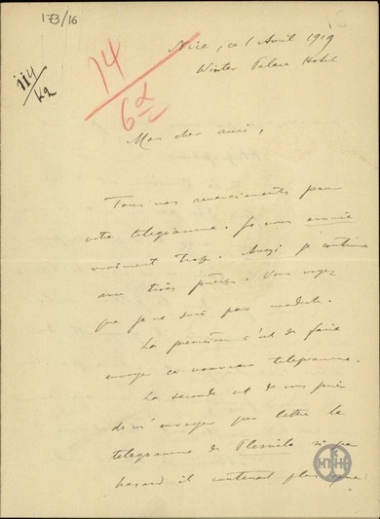 173/16
114
14
Nice, ce 1 Avril 1919
Winter Palace Hotel
Mon cher ami,
Tous nos remerciements pour
votre telegramme. Je vous ennuie
vraiment trop. Aussi je continue
avec trois prières. Vous voyez
que je ne suis pas modeste.
La première c'est de faire
envoyer ce nouveau telegramme.
La seconde est de vous prier
de m'envoyer par lettre le
telegramme de si par
hasard il contenait plus que